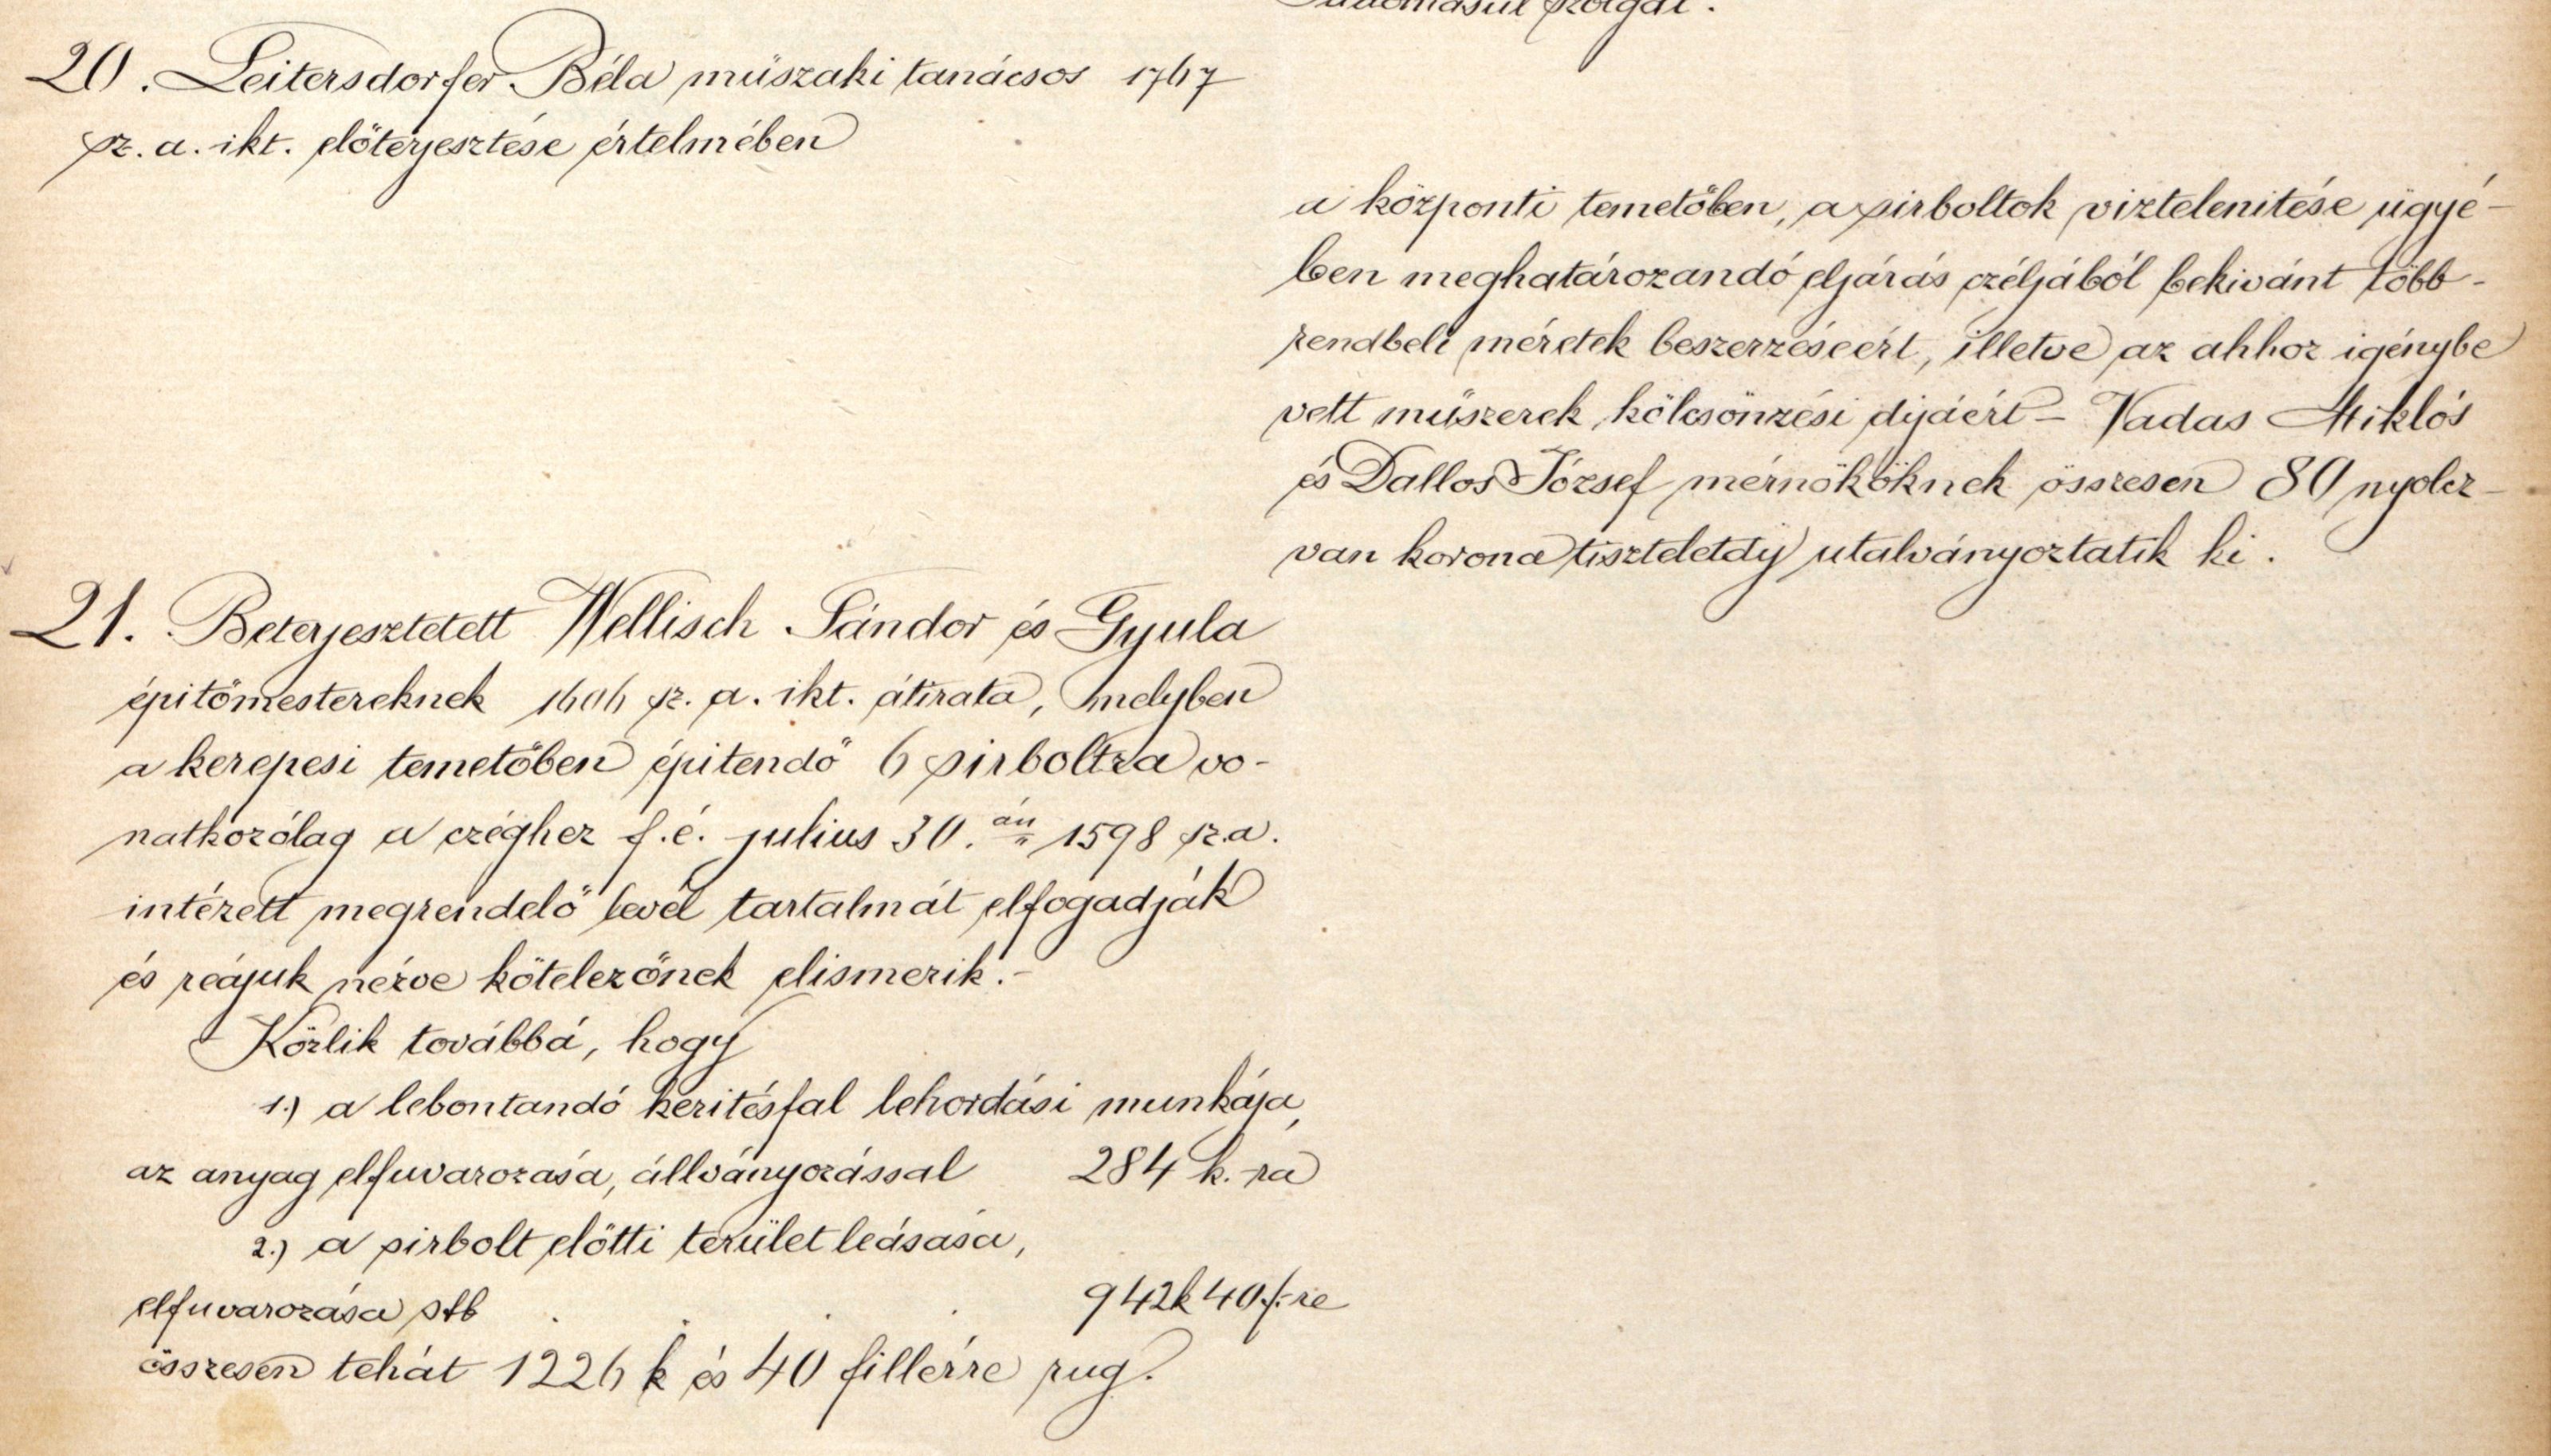 Tudomásul szolgál.
20. Leitersdorfer Béla műszaki tanácsos 1767
sz. a. ikt. előterjesztése értelmében
a központi temetőben, a sirboltok viztelenitése ügyé-
ben meghatározandó eljárás czéljából bekivánt több-
rendbeli méretek beszerzéseért, illetve az ahhoz igénybe
vett műszerek kölcsönzési dijáért – Vadas Miklós
és Dallos József mérnököknek összesen 80 nyolcz-
van korona tiszteletdij utalványoztatik ki.
21. Beterjesztetett Wellisch Sándor és Gyula
épitőmestereknek 1606 sz. a. ikt. átirata, melyben
a kerepesi temetőben épitendő 6 sirboltra vo-
natkozólag a czéghez f. é. julius 30.án 1598 sz. a.
intézett megrendelő levél tartalmát elfogadják
és reájuk nézve kötelezőnek elismerik.-
Közlik továbbá, hogy
1.) a lebontandó keritésfal lehordási munkája,
az anyag elfuvarozása, állványozással 284 k.-ra
2.) a sirbolt előtti terület leásása,
elfuvarozása stb . . . . 942k 40 f.-re
összesen tehát 1226 k és 40 fillérre rug.